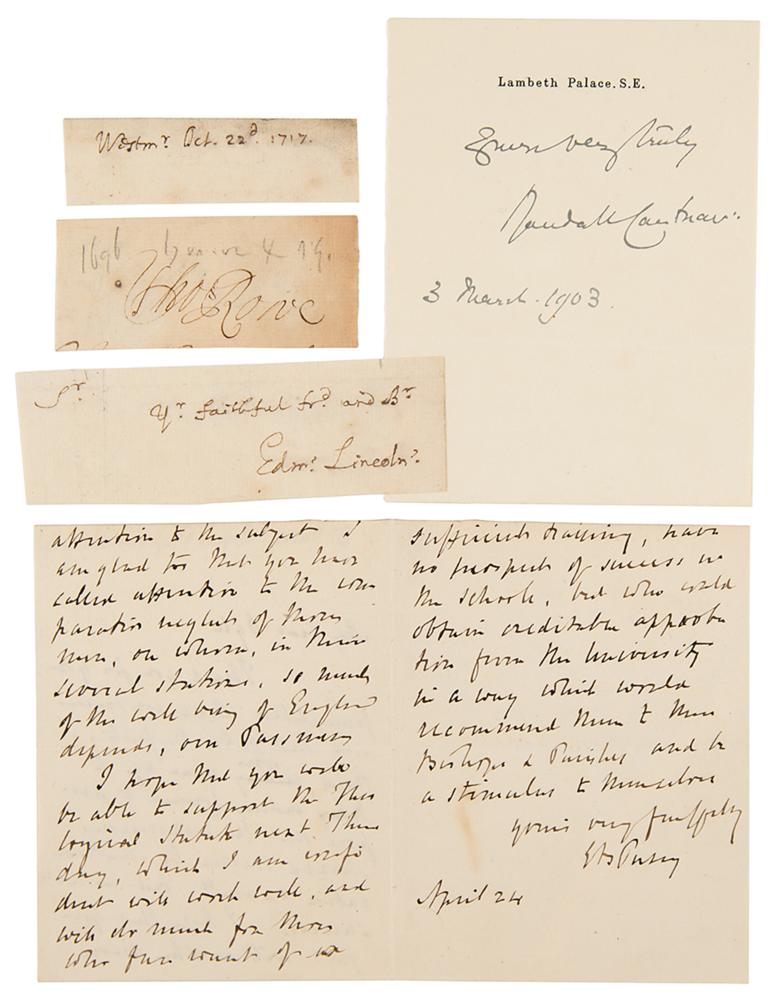 Lambeth Palace. S.E.
Yours very truly
Randall Cantuar:
3 March. 1903.
Westmr. Oct. 22d. 1717.
1696
Tho Rowe
Sr.
Yr. faithful frd and Br.
Edmd. Lincoln:
attention to the subject I
am glad too that you have
called attention to the com
parative neglect of those
men, on whom, in their
several stations, so much
of the well being of England
depends, our Passmen
I hope that you will
be able to support the Theo
logical Statute next Thurs
day, which I am confi
dent will work well, and
will do much for those
who from want of
sufficient training, have
no prospect of success in
the schools, but who could
obtain creditable approba
tion from the University
in a way which would
recommend them to their
Bishops & Parishes and be
a stimulus to themselves
yours very faithfully
EB Pusey
April 24